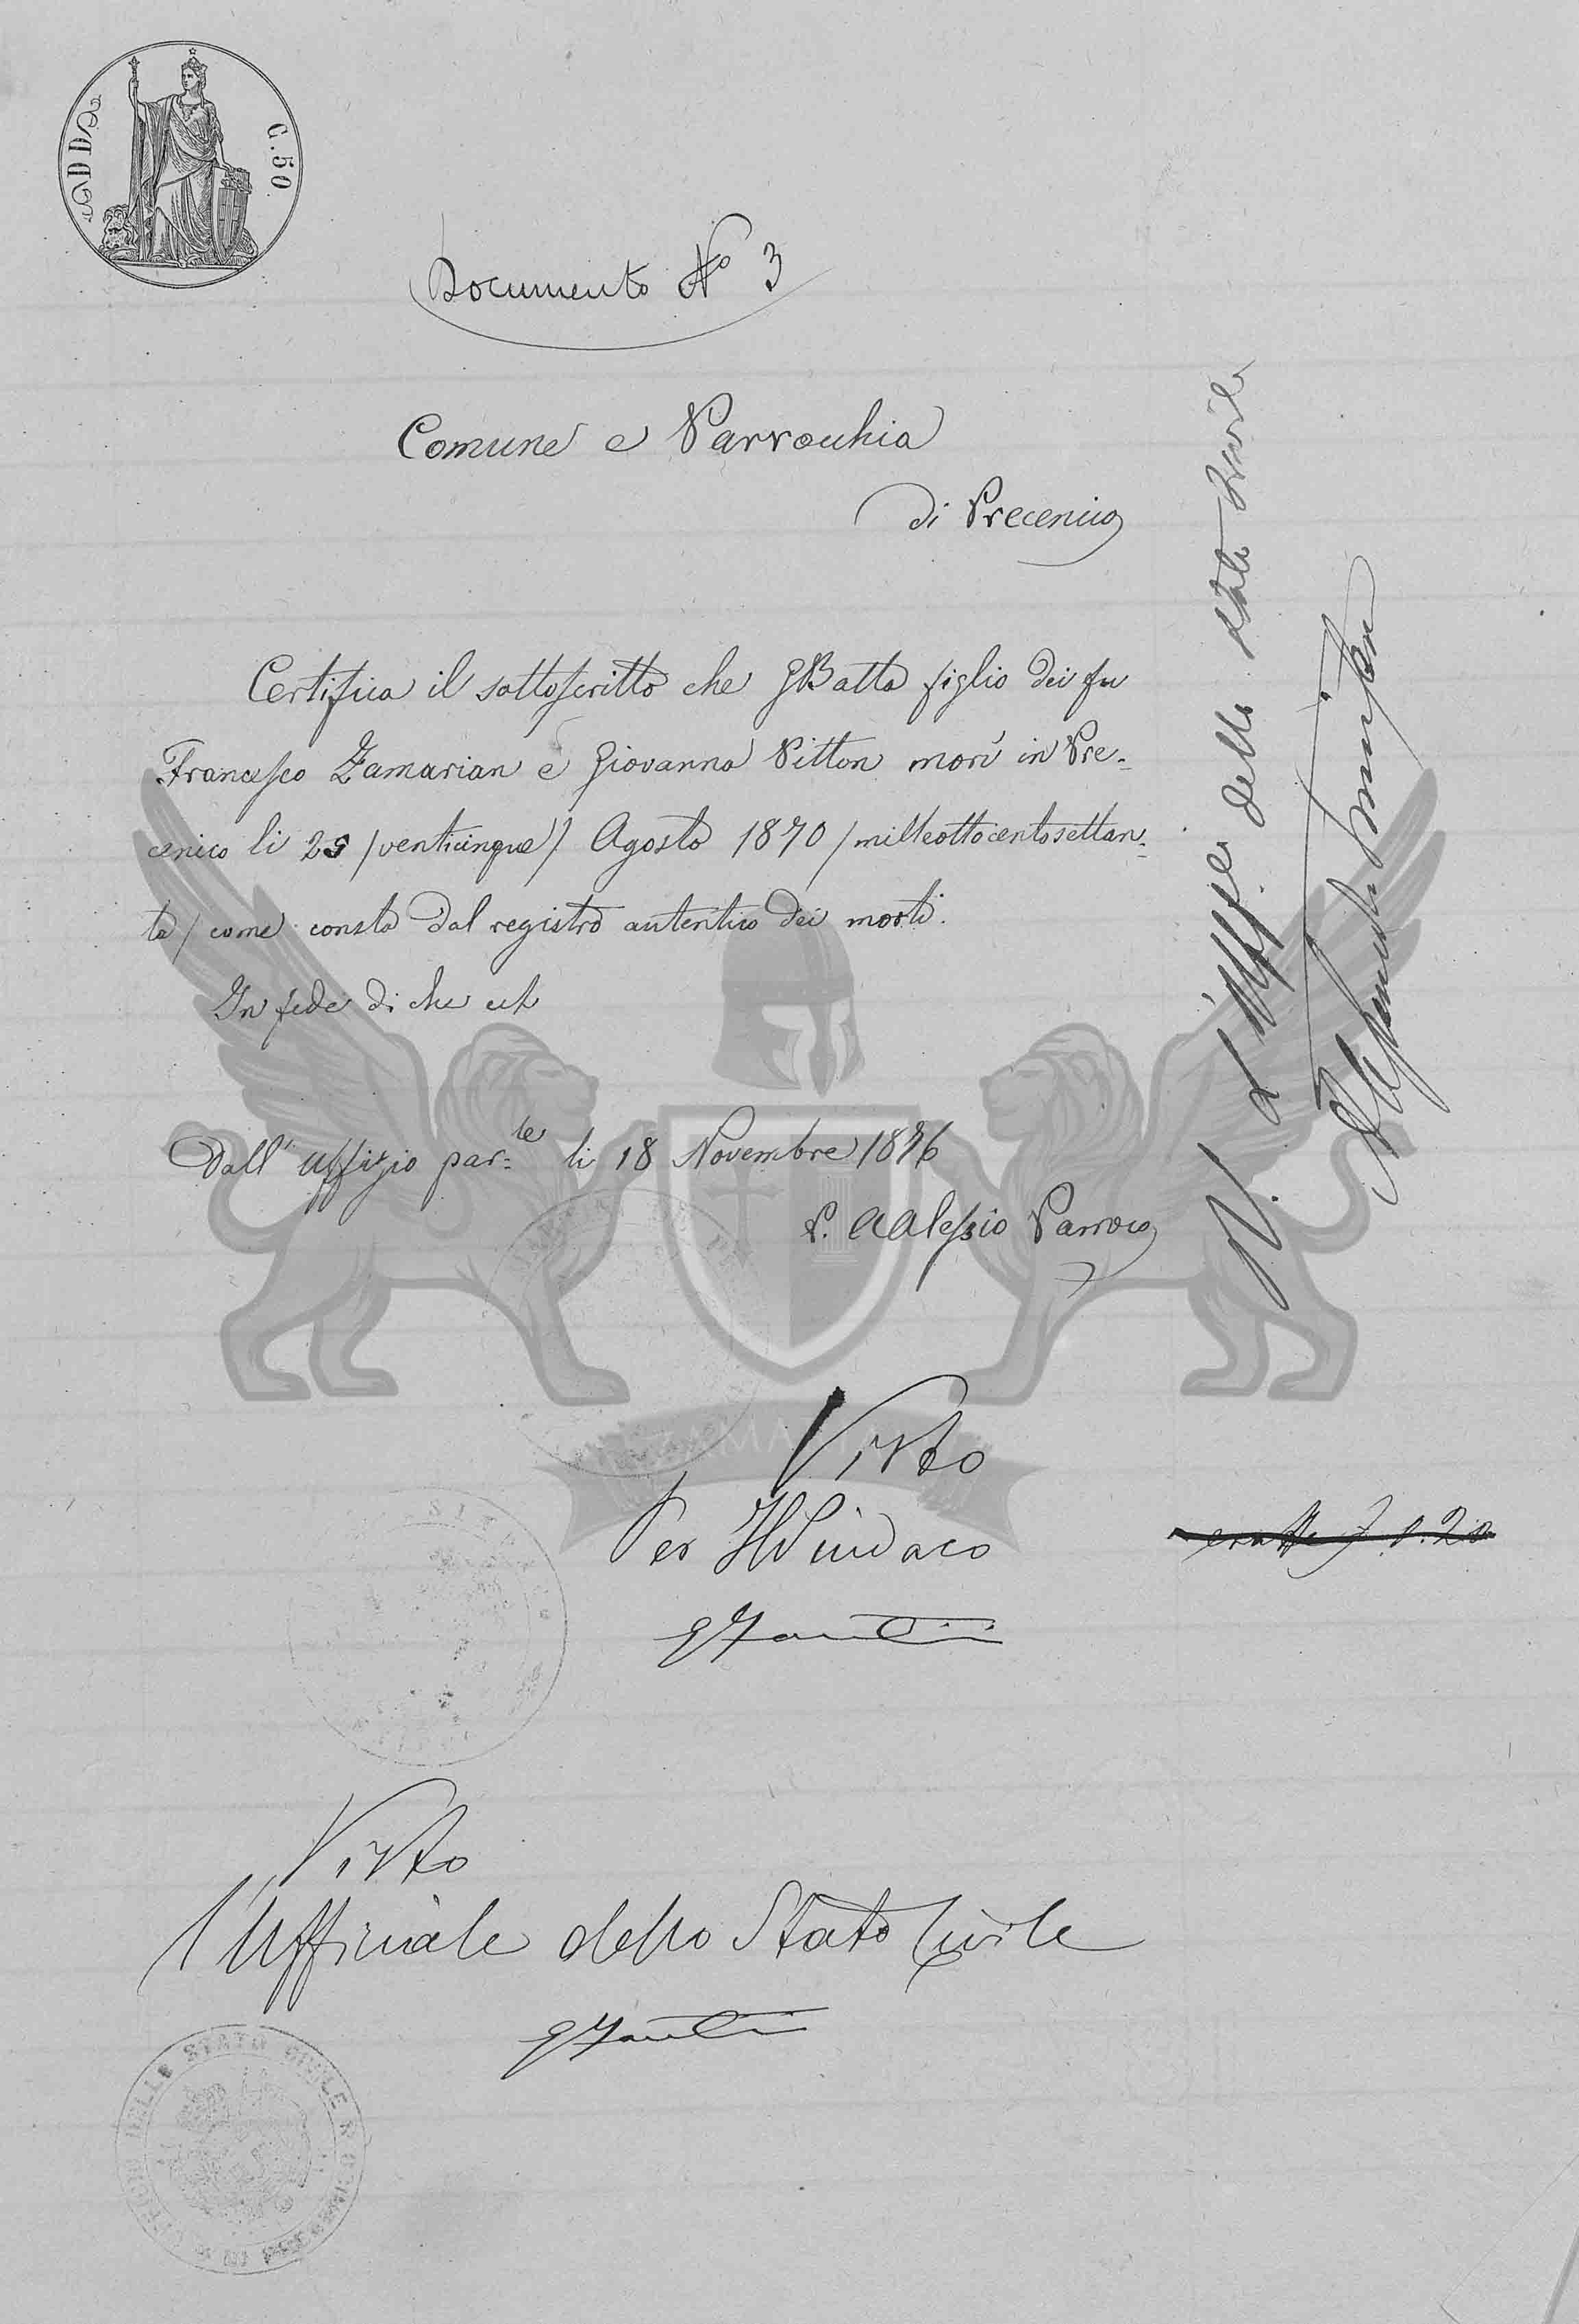 C. 50
Documento N.º 3
Comune e Parrochia
di Precenico
Certifica il sottoscritto che GBatta figlio dei fu
Francesco Zamarian e Giovanna Pitton morì in Pre-
cenico li 25 /venticinque/ Agosto 1870 /milleottocentosettan-
ta/ come consta dal registro autentico dei morti.
In fede di che
Dall' Uffizio par.le li 18 Novembre 1876
P. Alessio Parroco
Visto
Per Il Sindaco
Visto
l'Ufficiale dello Stato Civile
V. l'Uff.e dello Stato Civile
DELLO STATO CIVILE